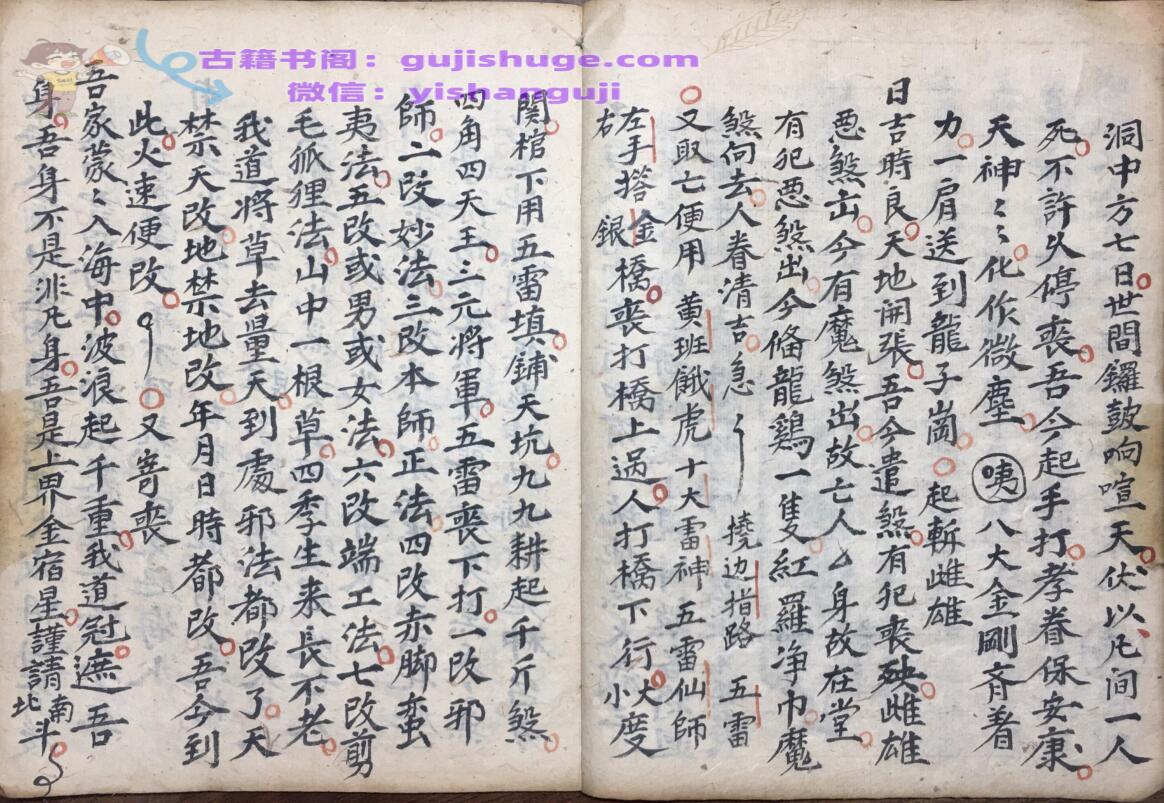 古籍书阁：gujishuge.com
微信：yishanguji
洞中方七日世間鑼鼓响喧天伏以凡间一人
死不許久停喪吾今起手打孝眷保安康
天神〻〻化作微塵 咦 八大金剛斉着
力一肩送到龍子崗 起斬雌雄
日吉時良天地開張吾今遣煞有犯喪殃雌雄
悪煞出今有魔煞出故亡人厶身故在堂
有犯悪煞出今俻龍鷄一隻紅羅净巾魔
煞向去人眷清吉急 撓边指路 五雷
又取亡便用 黄班餓虎 十大雷神 五雷仙師
左右手搭金銀橋喪打橋上過人打橋下行大小度
関棺下用五雷填鋪天坑九九耕起千斤煞
四角四天王三元将軍五雷喪下打一改邪
師二改妙法三改本師正法四改赤脚蛮
夷法五改或男或女法六改端工法七改剪
毛狐狸法山中一根草四季生来長不老
我道将草去量天到處邪法都改了天
禁天改地禁地改年月日時都改吾今到
此火速便改 又寄喪
吾家蒙〻入海中波浪起千重我道冠遮吾
身吾身不是非凡身吾是上界金宿星謹請南北斗